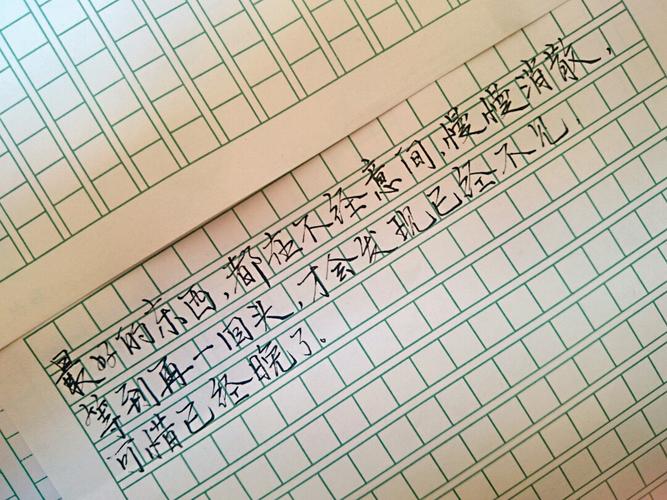 最好的东西,都在不经意间,慢慢消散,
等到再一回头,才会发现已经不见,
可惜已经晚了。